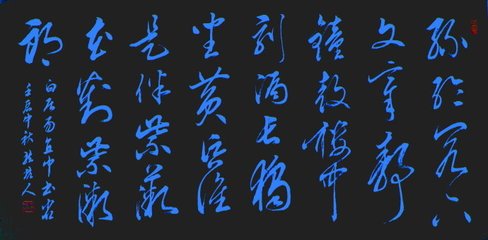 絲綸閣下
文章靜
鐘鼓樓中
刻漏長獨
坐黃昏誰
是伴紫薇
花對紫薇
郎
白居易直中書省
壬辰中秋